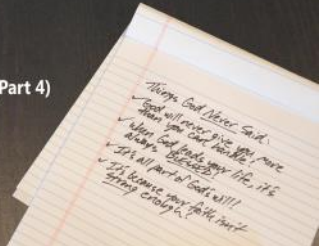 Part 4)
Things God Never Said:
✓ God will never give you more
than you can handle!
✓ When God leads your life, it's
always
✓ It's all part of God's will!
✓ It's because your faith isn't
strong enough!